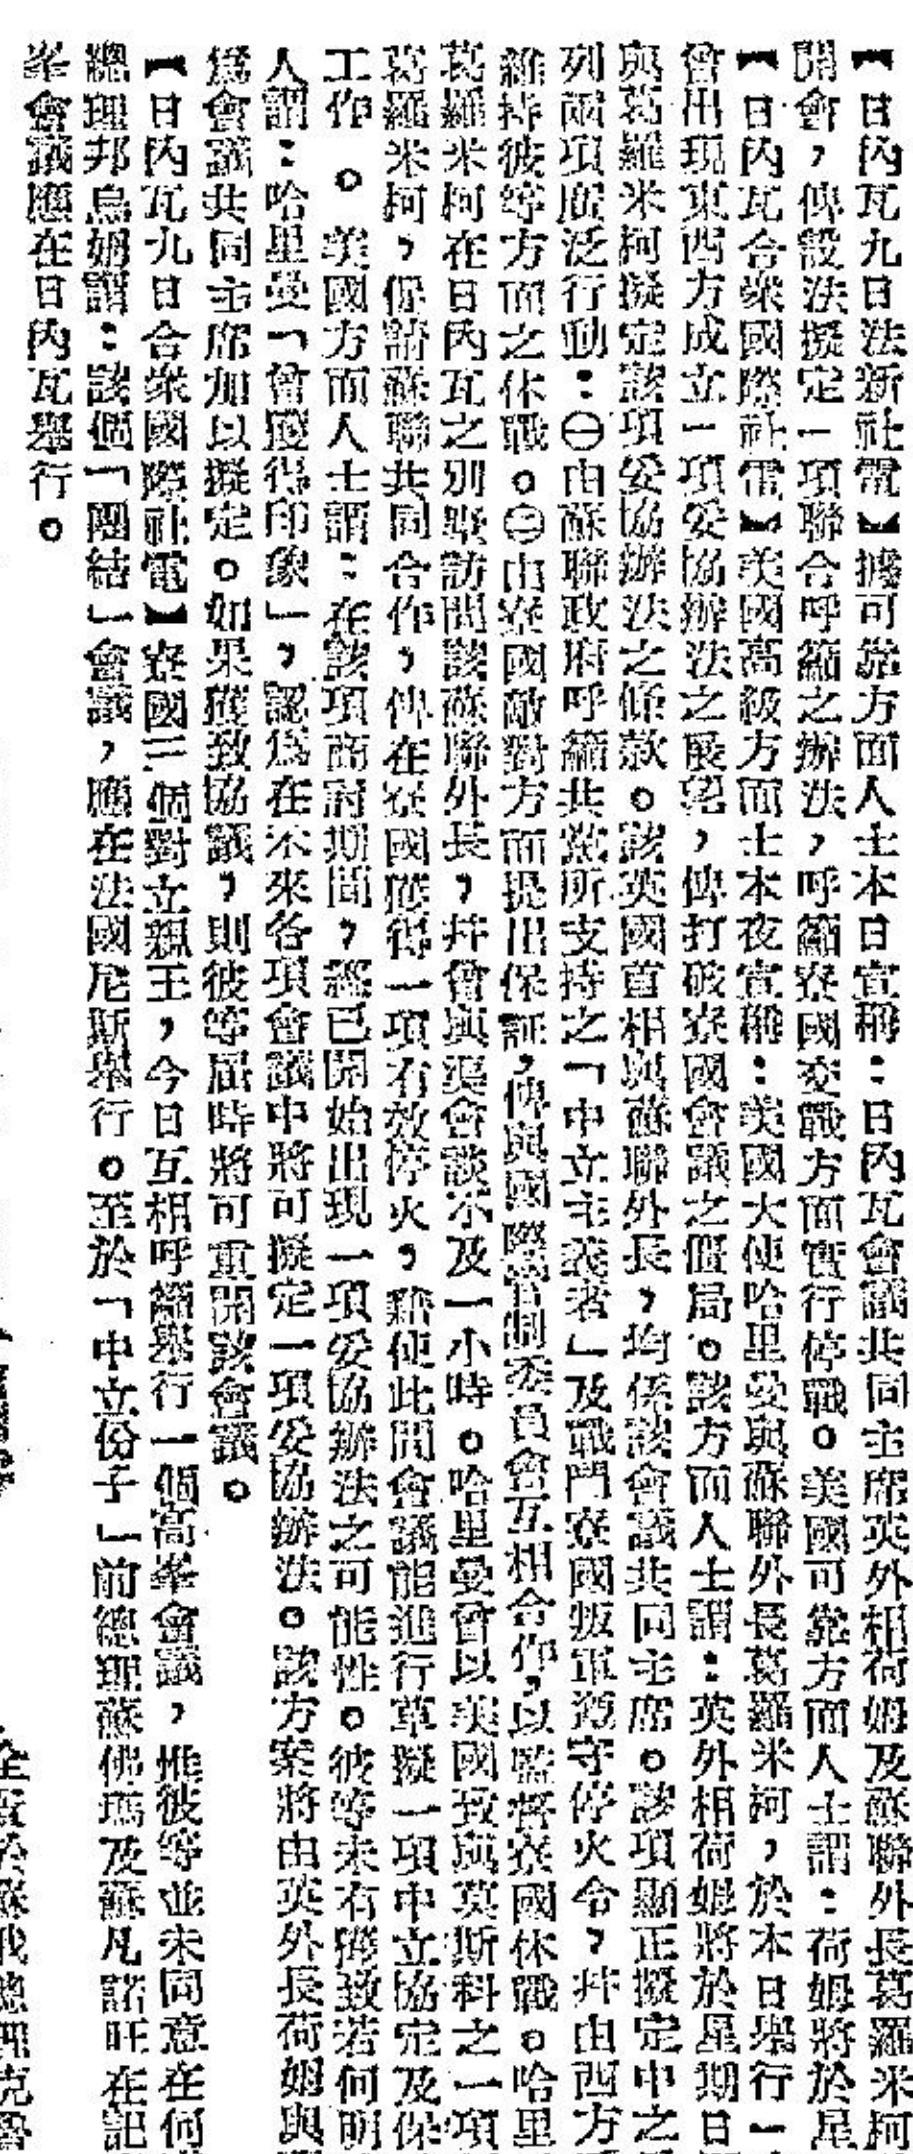 【日內瓦九日法新社電】據可靠方面人士本日宣稱：日內瓦會議共同主席英外相荷姆及蘇聯外長葛羅米柯
開會，俾設法擬定一項聯合呼籲之辦法，呼籲寮國交戰方面實行停戰。美國可靠方面人士謂：荷姆將於星
【日內瓦合衆國際社電】美國高級方面士本夜宣稱：美國大使哈里曼與蘇聯外長葛羅米柯，於本日舉行一
會出現東西方成立一項妥協辦法之展望，俾打破寮國會議之僵局。該方面人士謂：英外相荷姆將於星期日
與葛羅米柯擬定該項妥協辦法之條款。該英國首相與蘇聯外長，均係該會議共同主席。該項顯正擬定中之
列兩項廣泛行動：㊀由蘇聯政府呼籲共黨所支持之「中立主義者」及戰鬥寮國叛軍遵守停火令，幷由西方
維持彼等方面之休戰。㊁由寮國敵對方面提出保証，俾與國際管制委員會互相合作，以監督寮國休戰。哈里
葛羅米柯在日內瓦之別墅訪問該蘇聯外長，幷曾與渠會談不及一小時。哈里曼曾以美國致與莫斯科之一項
葛羅米柯，俾請蘇聯共同合作，俾在寮國獲得一項有效停火，藉使此間會議能進行草擬一項中立協定及保
工作。美國方面人士謂：在該項商討期間，經已開始出現一項妥協辦法之可能性。彼等未有獲致若何明
人謂：哈里曼「曾獲得印象」，認爲在未來各項會議中將可擬定一項妥協辦法。該方案將由英外長荷姆與
爲會議共同主席加以擬定。如果獲致協議，則彼等屆時將可重開該會議。
【日內瓦九日合衆國際社電】寮國三個對立親王，今日互相呼籲舉行一個高峯會議，惟彼等並未同意在何
總理邦烏姆謂：該個「團結」會議，應在法國尼斯舉行。至於「中立份子」前總理蘇佛瑪及蘇凡諾旺在記
峯會議應在日內瓦舉行。